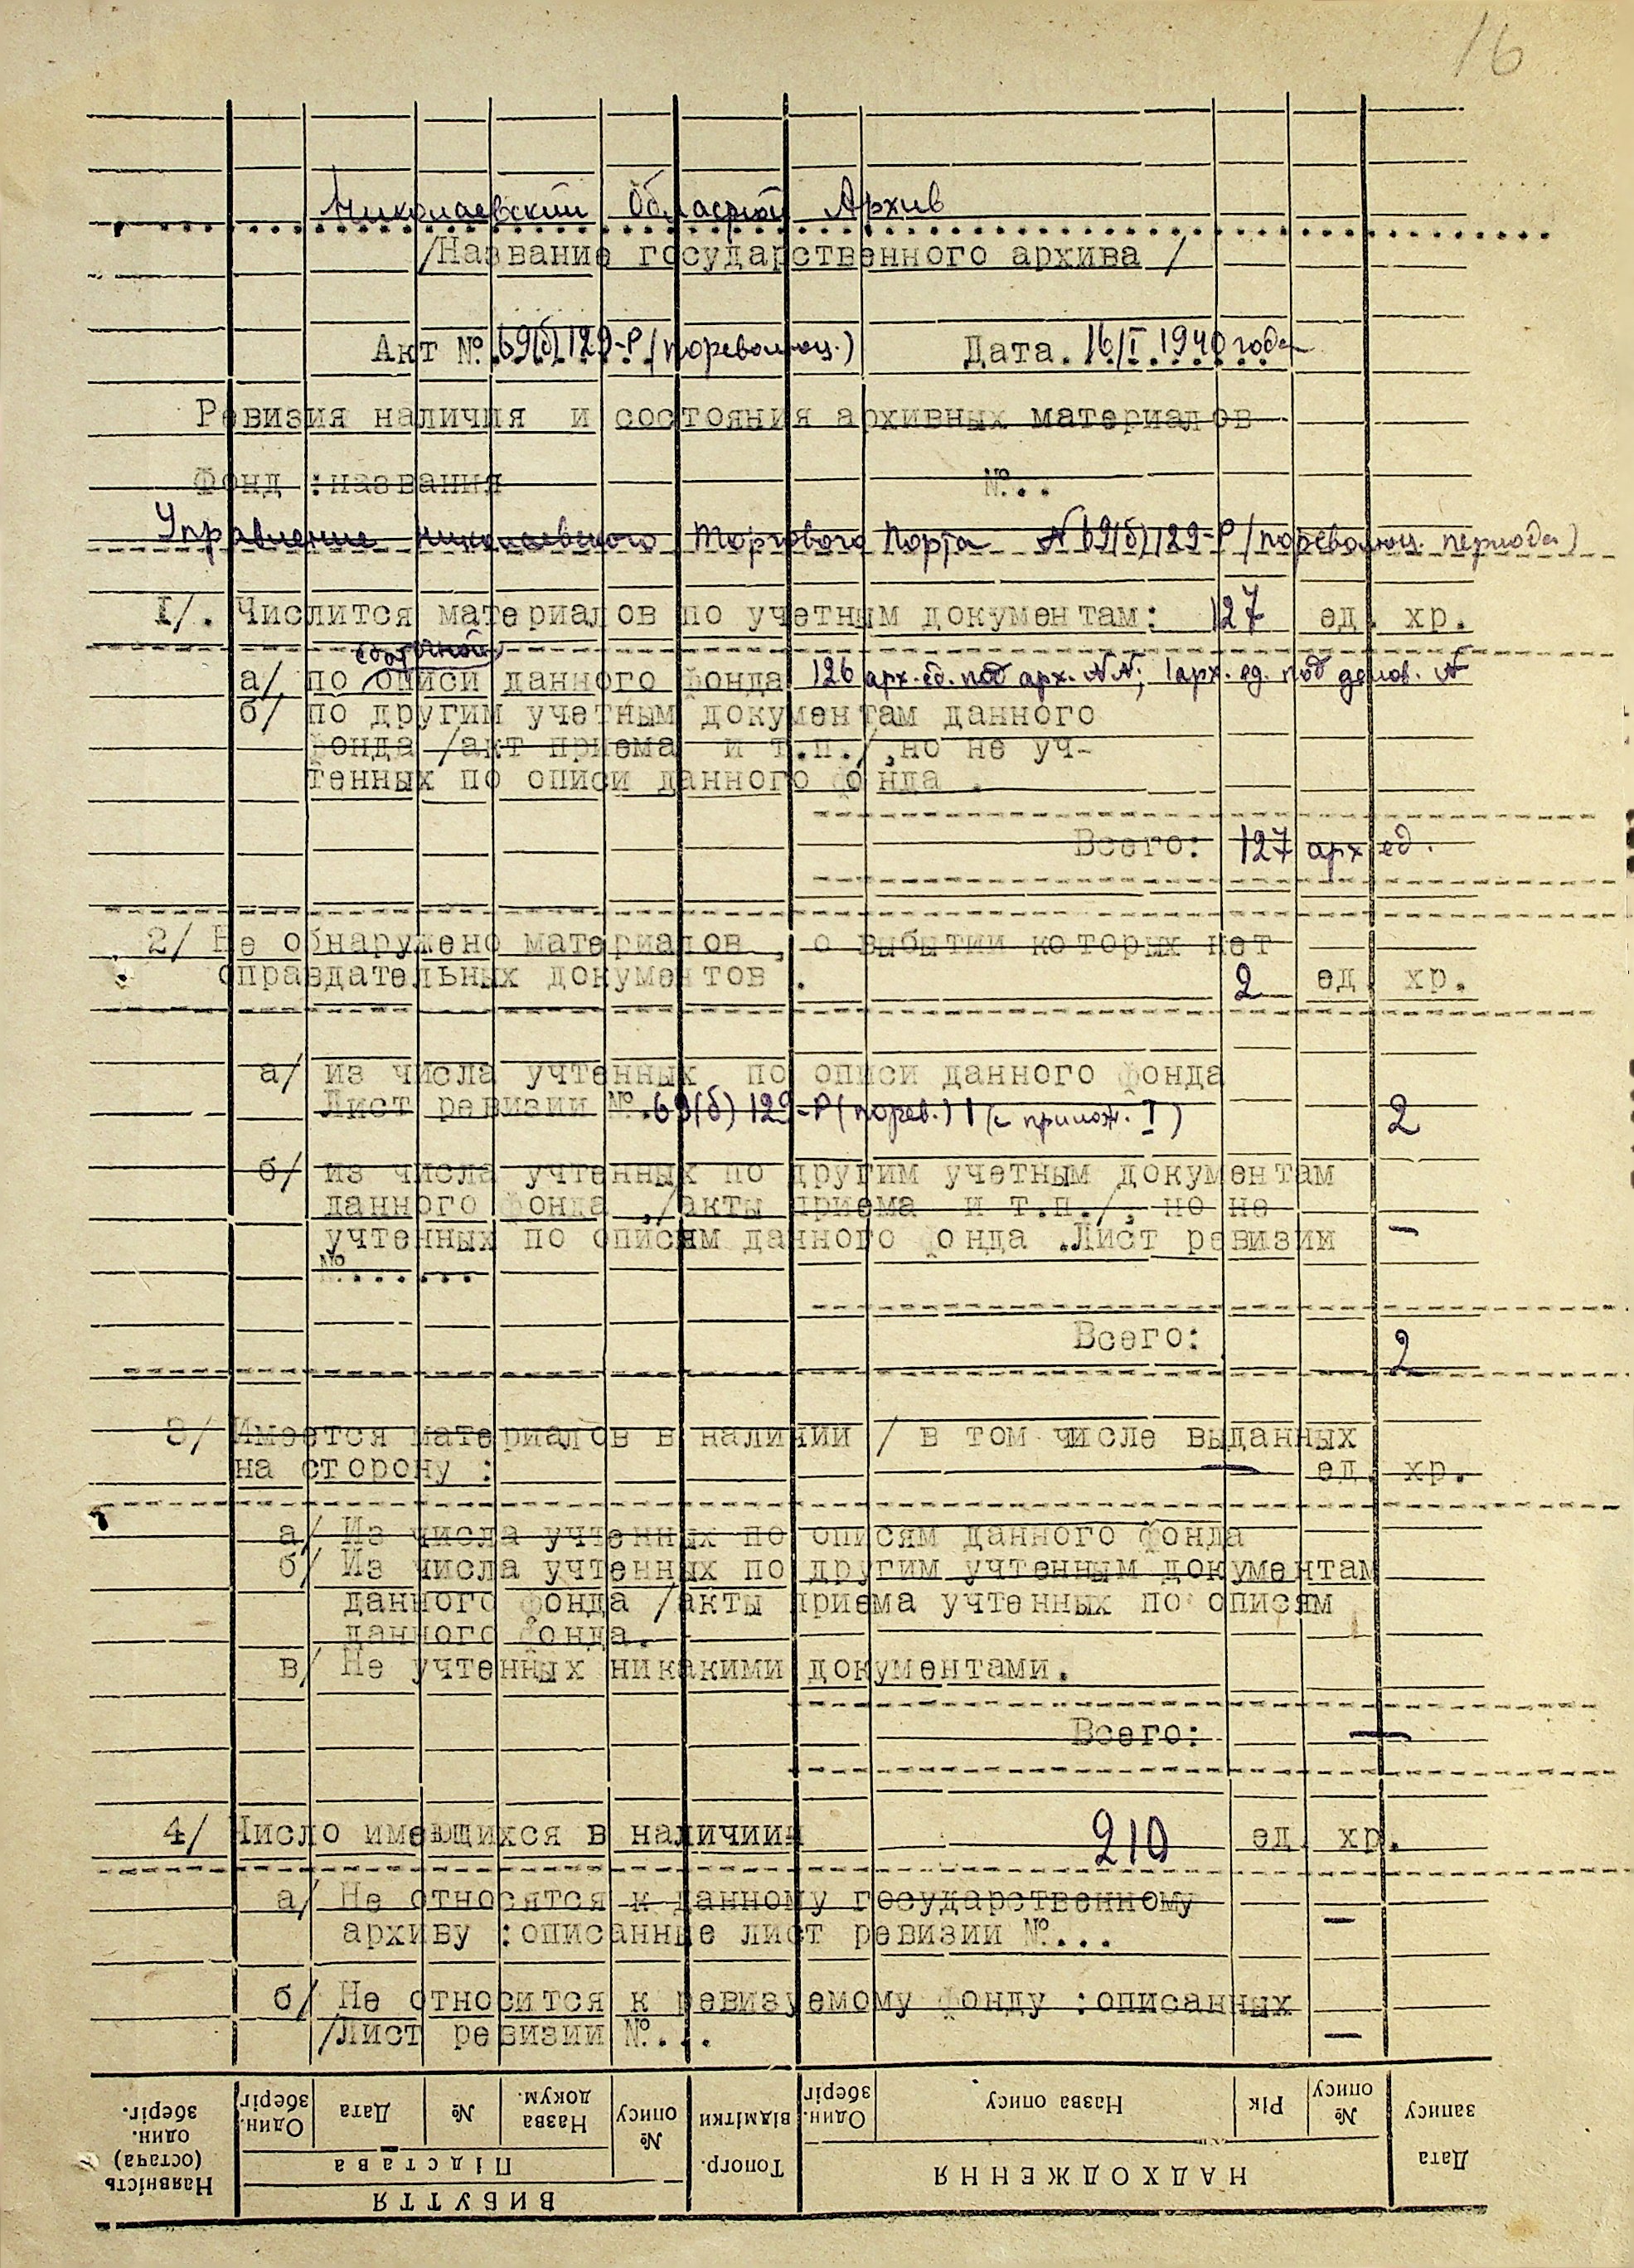 16
Николаевский Областной Архив
/Название государственного архива /
Акт № 69(б) 129-Р (пореволюц.) Дата. 16/I 1940 года
Ревизия наличия и состояния архивных материалов
Фонд :названия №..
Управление Николаевского Торгового Порта № 69(б) 129-Р (пореволюц. периода)
I/. Числится материалов по учетным документам: 127 ед. хр.
сдаточной
а/ по описи данного фонда 126 арх. ед. под арх. №№; 1 арх. ед. под делов. №
б/ по другим учетным документам данного
фонда /акт приема и т.п./,но не уч-
тенных по описи данного фонда .
Всего: 127 арх ед.
2/ Не обнаружено материалов , о выбытии которых нет
оправдательных документов . 2 ед. хр.
а/ из числа учтенных по описи данного фонда
Лист ревизии №.69(б) 129-Р (порев.) 1 (с прилож. I) 2
б/ из числа учтенных по другим учетным документам
данного фонда ,/акты приема и т.п./, но не
учтенных по описям данного фонда .Лист ревизии –
№.......
Всего: 2
3/ Имеется материалов в наличии / в том числе выданных
на сторону : — ед. хр.
а/ Из числа учтенных по описям данного фонда
б/ Из числа учтенных по другим учтенным документам
данного фонда /акты приема учтенных по описям
данного фонда.
в/ Не учтенных никакими документами.
Всего: —
4/ Число имеющихся в наличии 210 ед. хр.
а/ Не относятся к данному государственному
архиву :описанные лист ревизии №... –
б/ Не относится к ревизуемому фонду :описанных
/Лист ревизии №... –
Дата запису
НАДХОДЖЕННЯ
№ опису
Рік
Назва опису
Один. зберіг.
Топогр. відмітки
ВИБУТТЯ
№ опису
Підстава
Назва докум.
№
Дата
Один. зберіг.
Наявність (остача) один. зберіг.